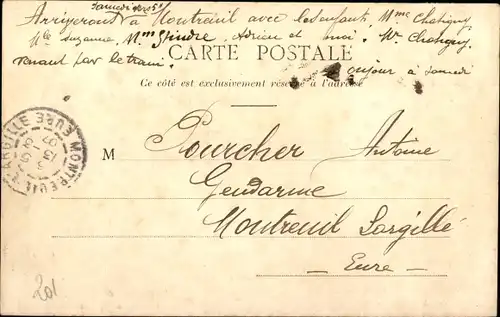 Samedi soir
Arriverons à Montreuil avec les enfants, Mme Chatigny
Mlle Suzanne, Mme Gindre, Adrien et moi. Mr Chatigny
venant par le train.
CARTE POSTALE
Bonjour à samedi
Ce côté est exclusivement réservé à l'adresse
M Pourcher Antoine
Gendarme
Montreuil Largillé
Eure
MONTREUIL L'ARGILLE EURE
201